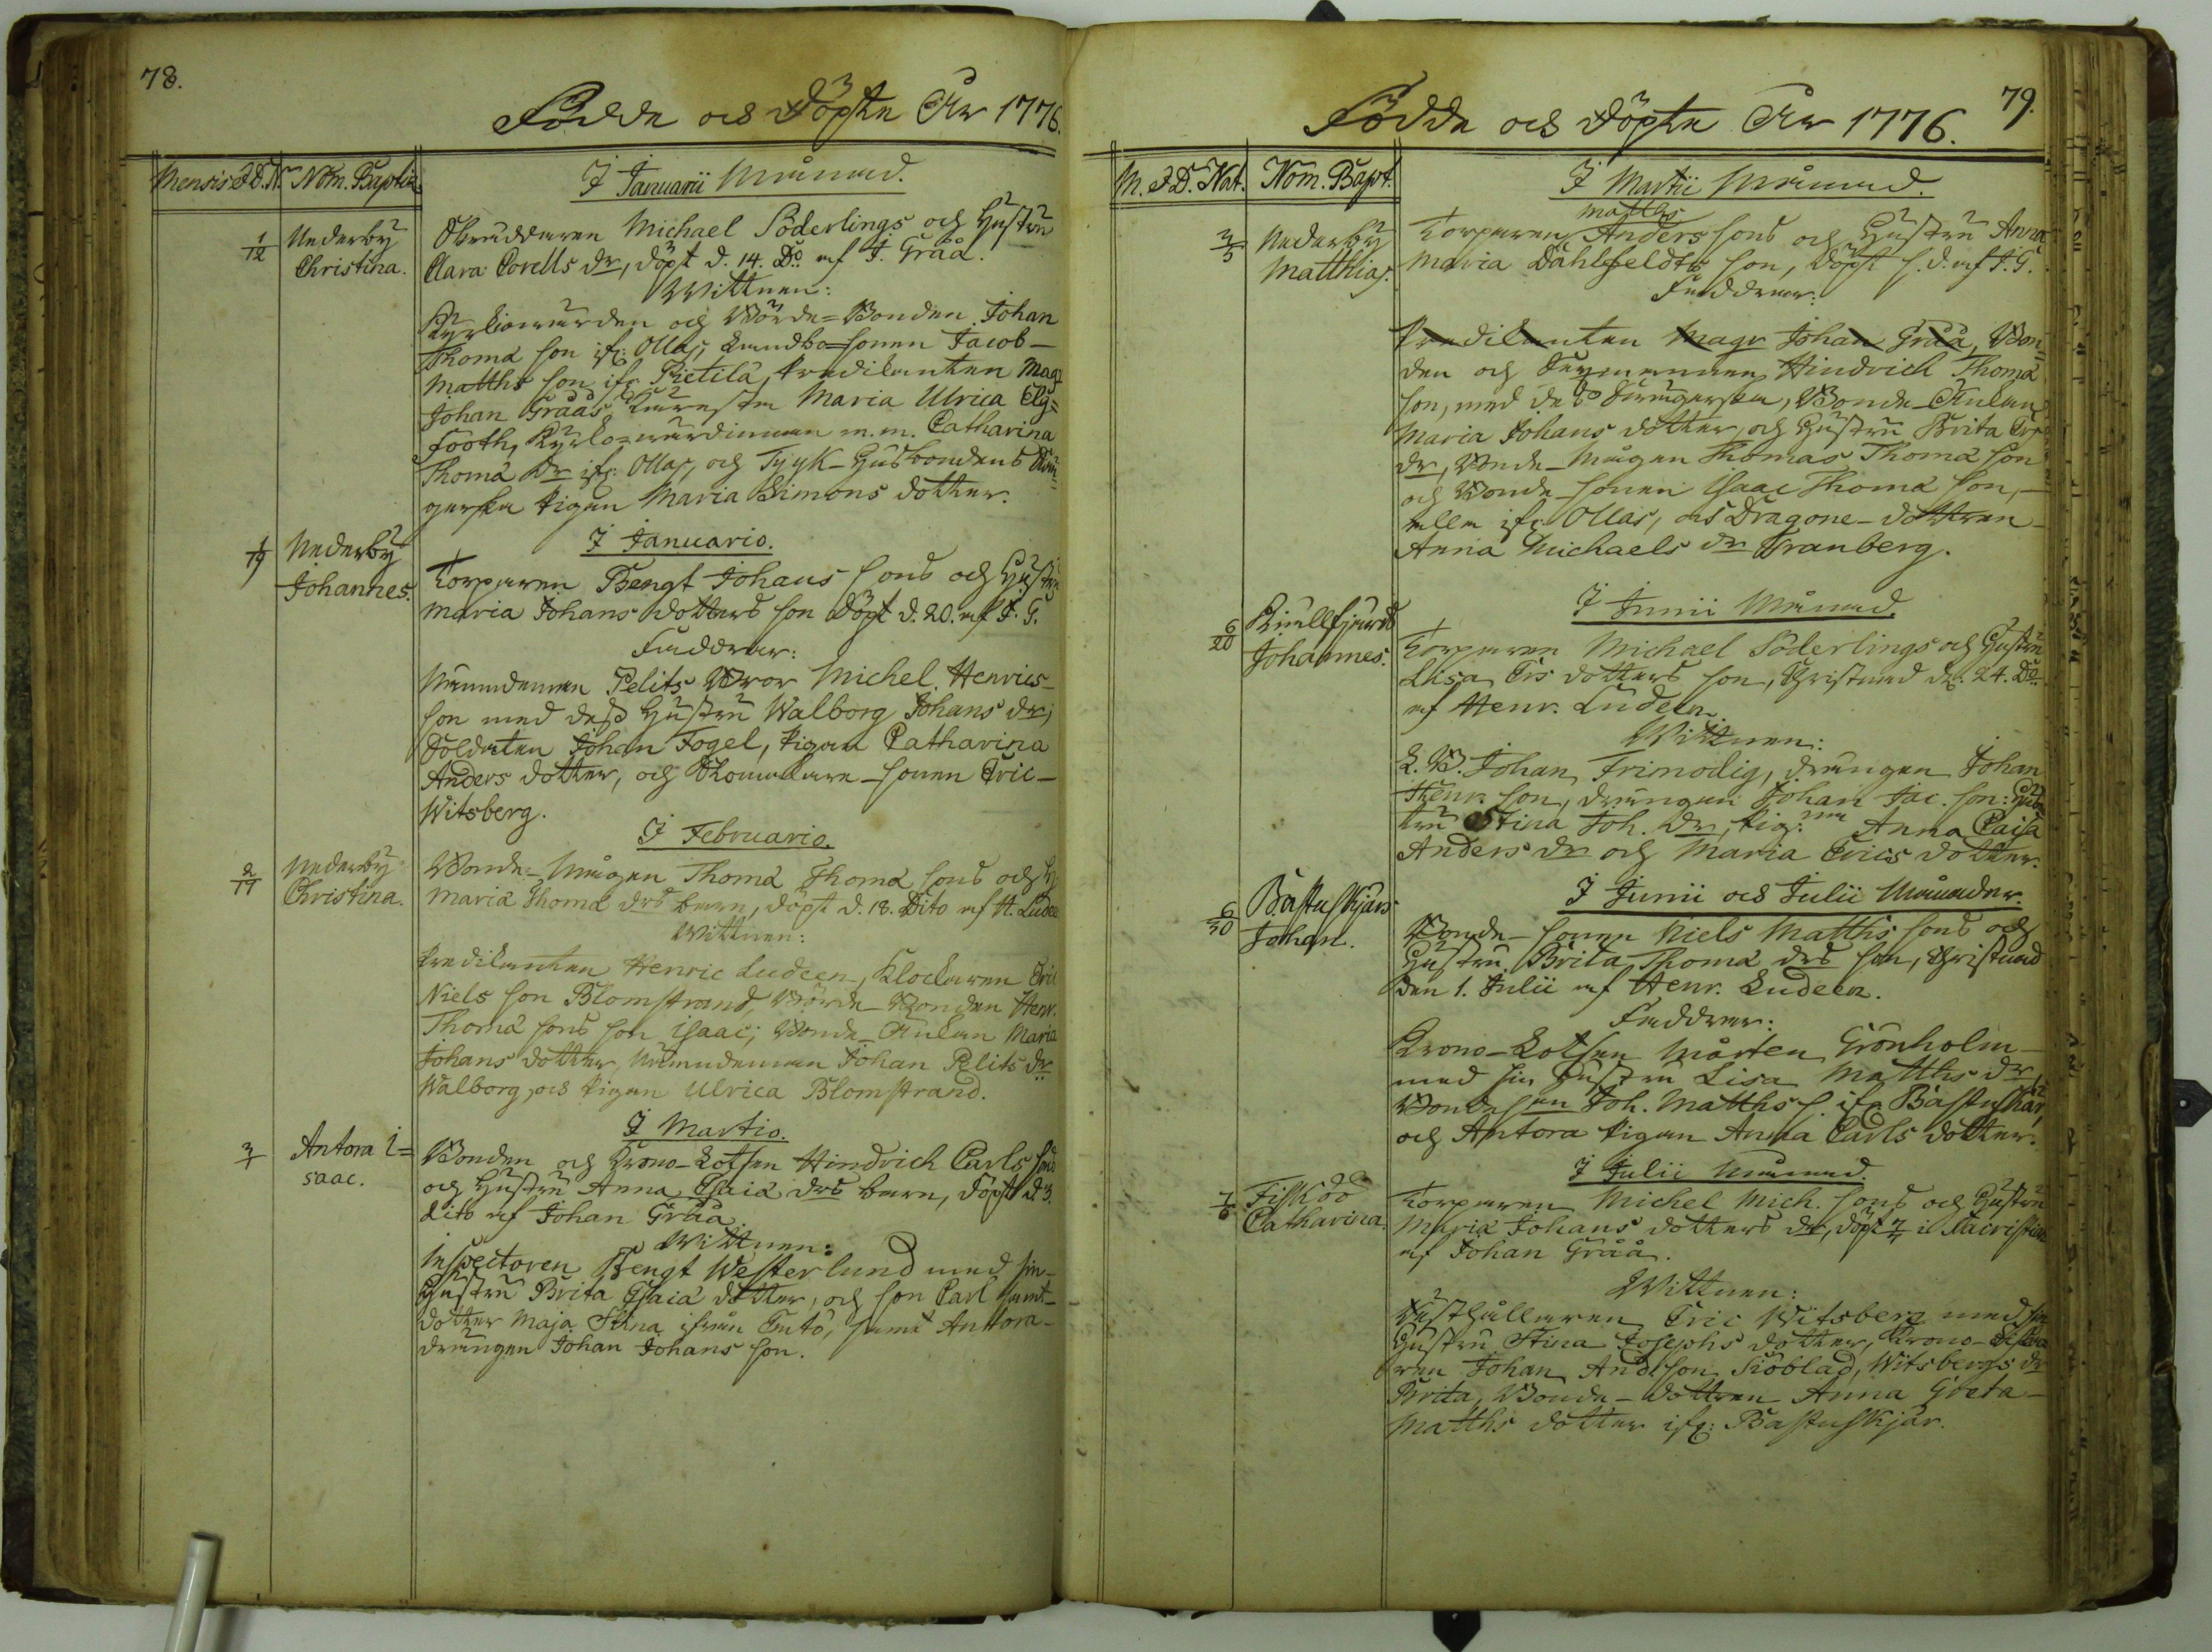 78.
Födde och Döpte År 1776.
Mensis & D. N. Nom. Baptiz.
I Januarii Månad.
1/12 Nederby
Christina.
Skräddaren Michael Söderlings och Hustru
Clara Corells dr, döpt d. 14. Do af J. Gråå.
Wittnen:
Kyrkiowärden och Wörde=Bonden Johan
Thomæ son ifr. Ollas, Lands Bo=sonen Jacob-
Matths son ifr Pietilä, Predikanten Mag
Johan Grååś Käresta Maria Ulrica Elg=
footh, Kyrko=wärdinnan m.m. Catharina
Thomæ Dr ifr. Ollas, och Tyyk-Husbondens Sÿn=
gerska Pigan Maria Simons dotter.
I Januario.
1/19 Nederby
Johannes.
Torparen Bengt Johans sons och Hustru
Maria Johans dotters son döpt d. 20. af J. G.
Faddrar:
Nämndeman Pelits Bror Michel Henrics-
son med dess Hustru Walborg Johans dr,
Soldaten Johan Fogel, Pigan Catharina
Anders dotter, och Skomakare-sonen Eric-
Witsberg.
I Februario.
2/17 Nederby
Christina.
Bonde=Mågen Thomæ Thomæ sons och H
Maria Thomæ drs barn, döpt d. 18. Dito af H. Ludee
Wittnen:
Predikanten Henric Ludeen, Klockaren Eric
Niels son Blomstrand, Wörde-Bonden Henr.
Thomæ sons son Isaac; Bonde-Änkan Maria
Johans dotter, Nämndeman Johan Pelits Dr
Walborg, och Pigan Ulrica Blomstrand.
I Martio.
3/1 Antora I=
saac.
Bonden och Krono-Lotsen Hindrich Carls sons
och Hustru Anna Esaiæ drs barn, döpt d 3.
dito af Johan Gråå.
Wittnen:
Inspectoren Bengt Westerlund med sin
Hustru Brita Esaiæ dotter, och son Carl samt-
dotter Maja Stina ifrån Tutö, samt Antora-
drängen Johan Johans son.
79.
Födde och Döpte År 1776.
M. & D. Nat. Nom. Bapt.
I Martii Månad.
3/5 Nederby
Matthias.
Matths
Torparen Anders sons och Hustru Anna
Maria Dahlfeldts son, döpt s. d. af J. G.
Faddrar:
Predikanten Magr Johan Gråå, Bon=
den och Hindrich Thomæ
son, med des Bonde-Änkan
Maria Johans dotter, och Hustru Brita Ers
dr, Bonde-Mågen Thomas Thomæ son
och Bonde-sonen Isaac Thomæ son,-
alla ifr Ollas, och Dragone-dottren
Anna Michaels dr Tranberg.
I Junii Månad.
6/20
Johannes.
Torparen Michael Söderlings och Hustru
Lisa Ers dotters son, Christnad d. 24. Do
af Henr. Ludeen.
Wittnen:
L. B. Johan Frimodig, drängen Johan
Henr. son, drängen Johan Jac. son: Hus
tru Stina Joh. dr, Pig: Anna Caisa
Anders dr och Maria Erics dotter.
I Junii och Julii Månader.
6/30 Bastuskjärs
Johan.
Bonde-sonen Niels Matths sons och
Hustru Brita Thomæ drs son, Christnad
den 1. Julii af Henr. Ludeen.
Faddrar:
Krono-Lotsen Mårten Grönholm-
med sin Hustru Lisa Matths dr,
Bondesonen Joh. Matths s. ifr Bastuskär,
och Antora Pigan Anna Carls dotter.
I Julii Månad.
7/6 Fiskdö
Catharina.
Torparen Michel Mich. sons och Hustru
Maria Johans dotters dr, döpt 7 i Sacristian
af Johan Gråå.
Wittnen:
Rusthållaren Eric Witsberg med sin
Hustru Stina Josephs dotter, Krono-
ren Johan And. son Siöblad, Witsbergs dr
Brita, Bonde-dottren Anna Greta-
Matths dotter ifr: Bastuskjär.